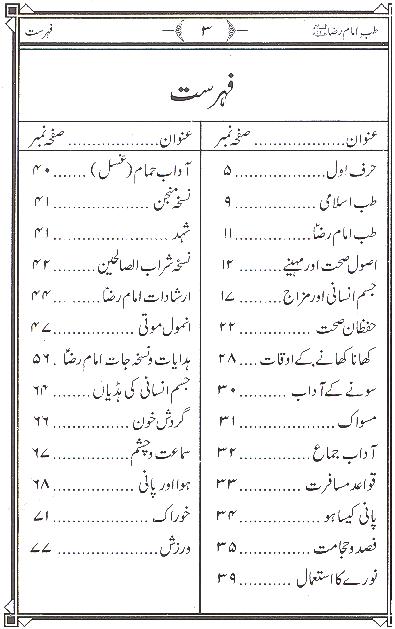 طب امام رضاؑ ۳ فہرست
فہرست
عنوان .................... صفحہ نمبر
حرف اول ............... ۵
طب اسلامی ............... ۹
طب امام رضاؑ ............... ۱۱
اصول صحت اور مہینے ........ ۱۲
جسم انسانی اور مزاج ........ ۱۷
حفظان صحت ............... ۲۲
کھانا کھانے کے اوقات .... ۲۸
سونے کے آداب .......... ۳۰
مسواک .................. ۳۱
آداب جماع ............... ۳۲
قواعد مسافرت ............ ۳۳
پانی کیسا ہو ............... ۳۴
فصد و حجامت ............... ۳۵
نورے کا استعمال .......... ۳۹
عنوان .................... صفحہ نمبر
آداب حمام (غسل) ....... ۴۰
نسخہ منجن ................. ۴۱
شہد ..................... ۴۱
نسخہ شراب الصالحین ........ ۴۲
ارشادات امام رضاؑ ........ ۴۴
انمول موتی ............... ۴۷
ہدایات و نسخہ جات امام رضاؑ . ۵۶
جسم انسانی کی ہڈیاں ........ ۶۴
گردش خون ............... ۶۶
سماعت و چشم .............. ۶۷
ہوا اور پانی ............... ۶۸
خوراک .................. ۷۱
ورزش .................. ۷۷